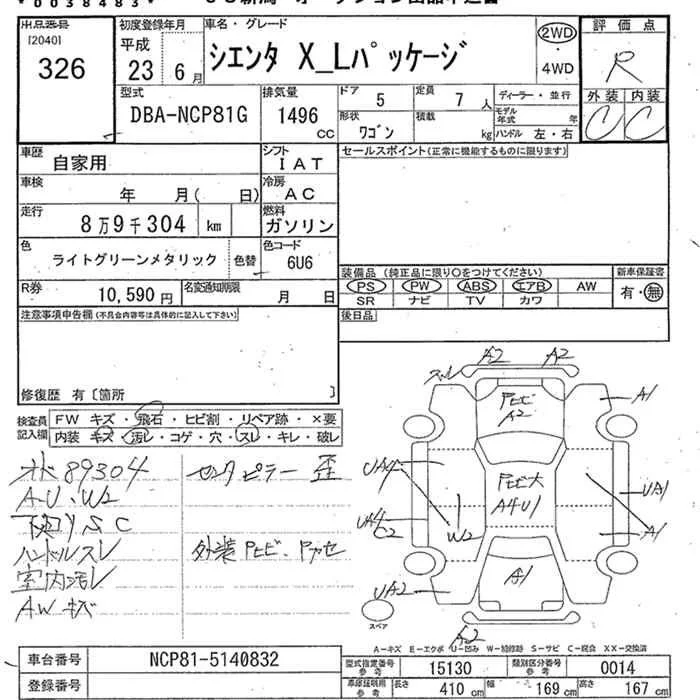 *0038483*
出品番号
[2040]
326
初度登録年月
平成
23年 6月
車名・グレード
シエンタ X_Lパッケージ
2WD
・
4WD
評価点
R
外装 内装
C C
型式
DBA-NCP81G
排気量
1496
cc
ドア
5
定員
7人
ディーラー・並行
モデル年式 年
形状
ワゴン
積載
kg
ハンドル 左・右
車歴
自家用
シフト
IAT
セールスポイント(正常に機能するものに限ります)
車検
年 月( 日)
冷房
AC
走行
8万9千304 km
燃料
ガソリン
色
ライトグリーンメタリック
色替
色コード
6U6
R券
10,590円
名変通知期限
月 日
装備品(純正品に限り○をつけてください)
PS PW ABS エアB AW
SR ナビ TV カワ
新車保証書
有・無
後日品
注意事項申告欄(不具合内容等は具体的に記入して下さい)
修復歴 有〔箇所 〕
検査員
記入欄
FW キズ・飛石・ヒビ割・リペア跡・×要
内装 キズ・汚レ・コゲ・穴・スレ・キレ・破レ
89304
A-U・W2
ハンドルスレ
室内汚レ
AW キズ
センターピラー 歪
外装 PヒビP、Pカセ
スレ
A2
A2
Pヒビ
A2
A1
UA4
Pヒビ大
A4U1
UA1
UA4
C2
W2
A1
UA2
A1
A2
スペア
A-キズ E-エクボ U-凹み W-補修跡 S-サビ C-腐食 XX-交換済
車台番号
NCP81-5140832
登録番号
型式指定番号
参考
15130
類別区分番号
参考
0014
車庫証明用
参考
長さ
410 cm
幅
169 cm
高さ
167 cm